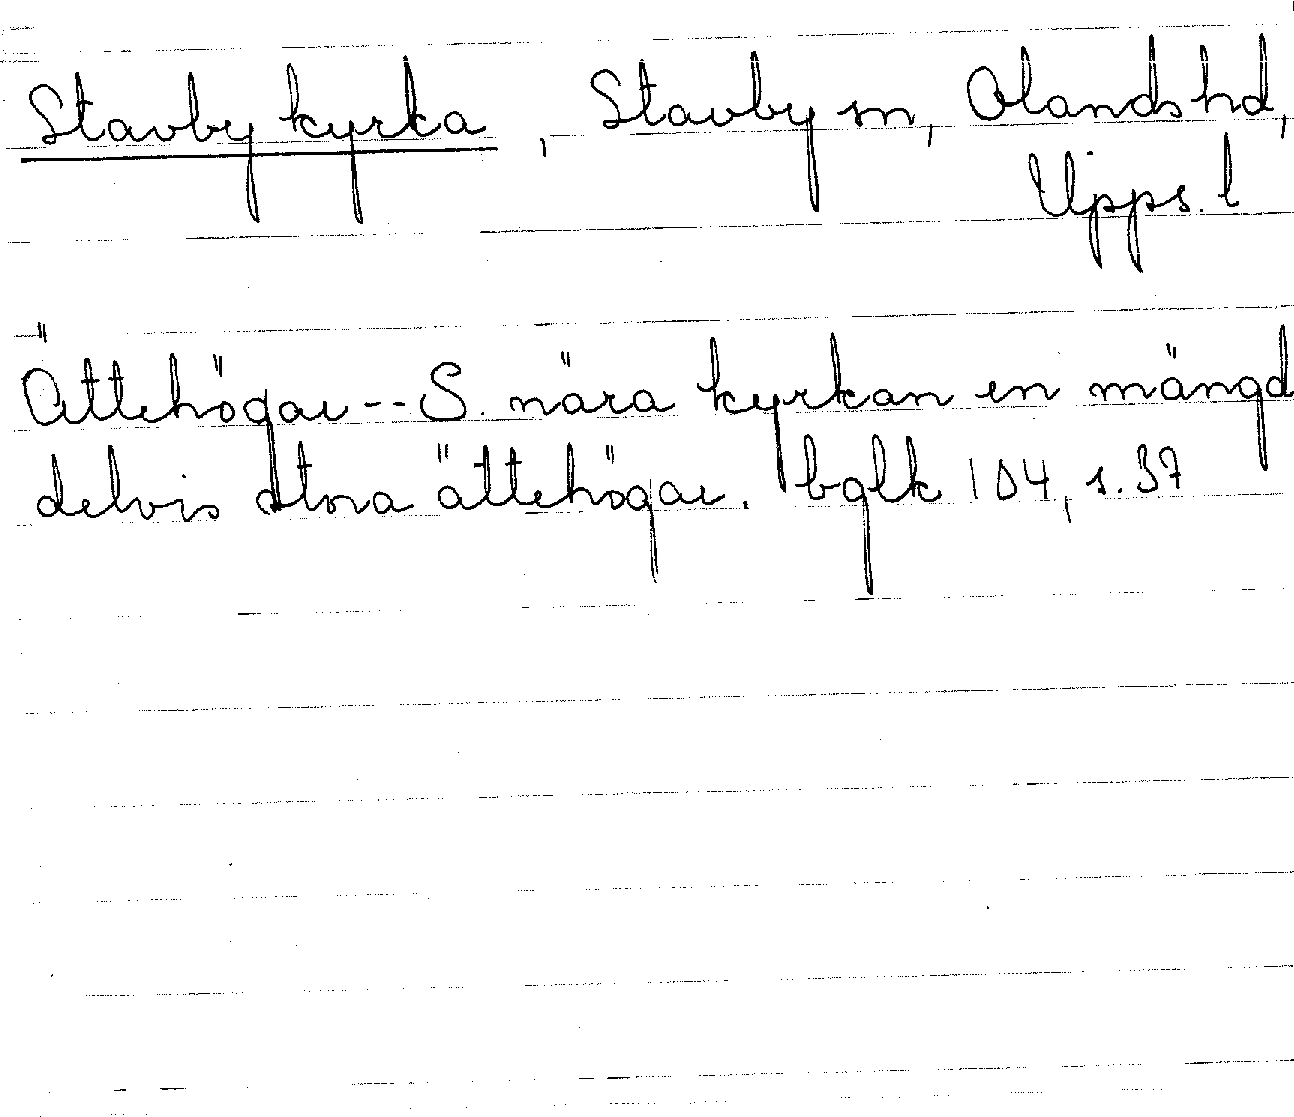 Stavby kyrka, Stavby sn, Olands hd,
Upps. l
Ättehögar -- S. nära kyrkan en mängd
delvis stora ättehögar. bglk 104, s. 37